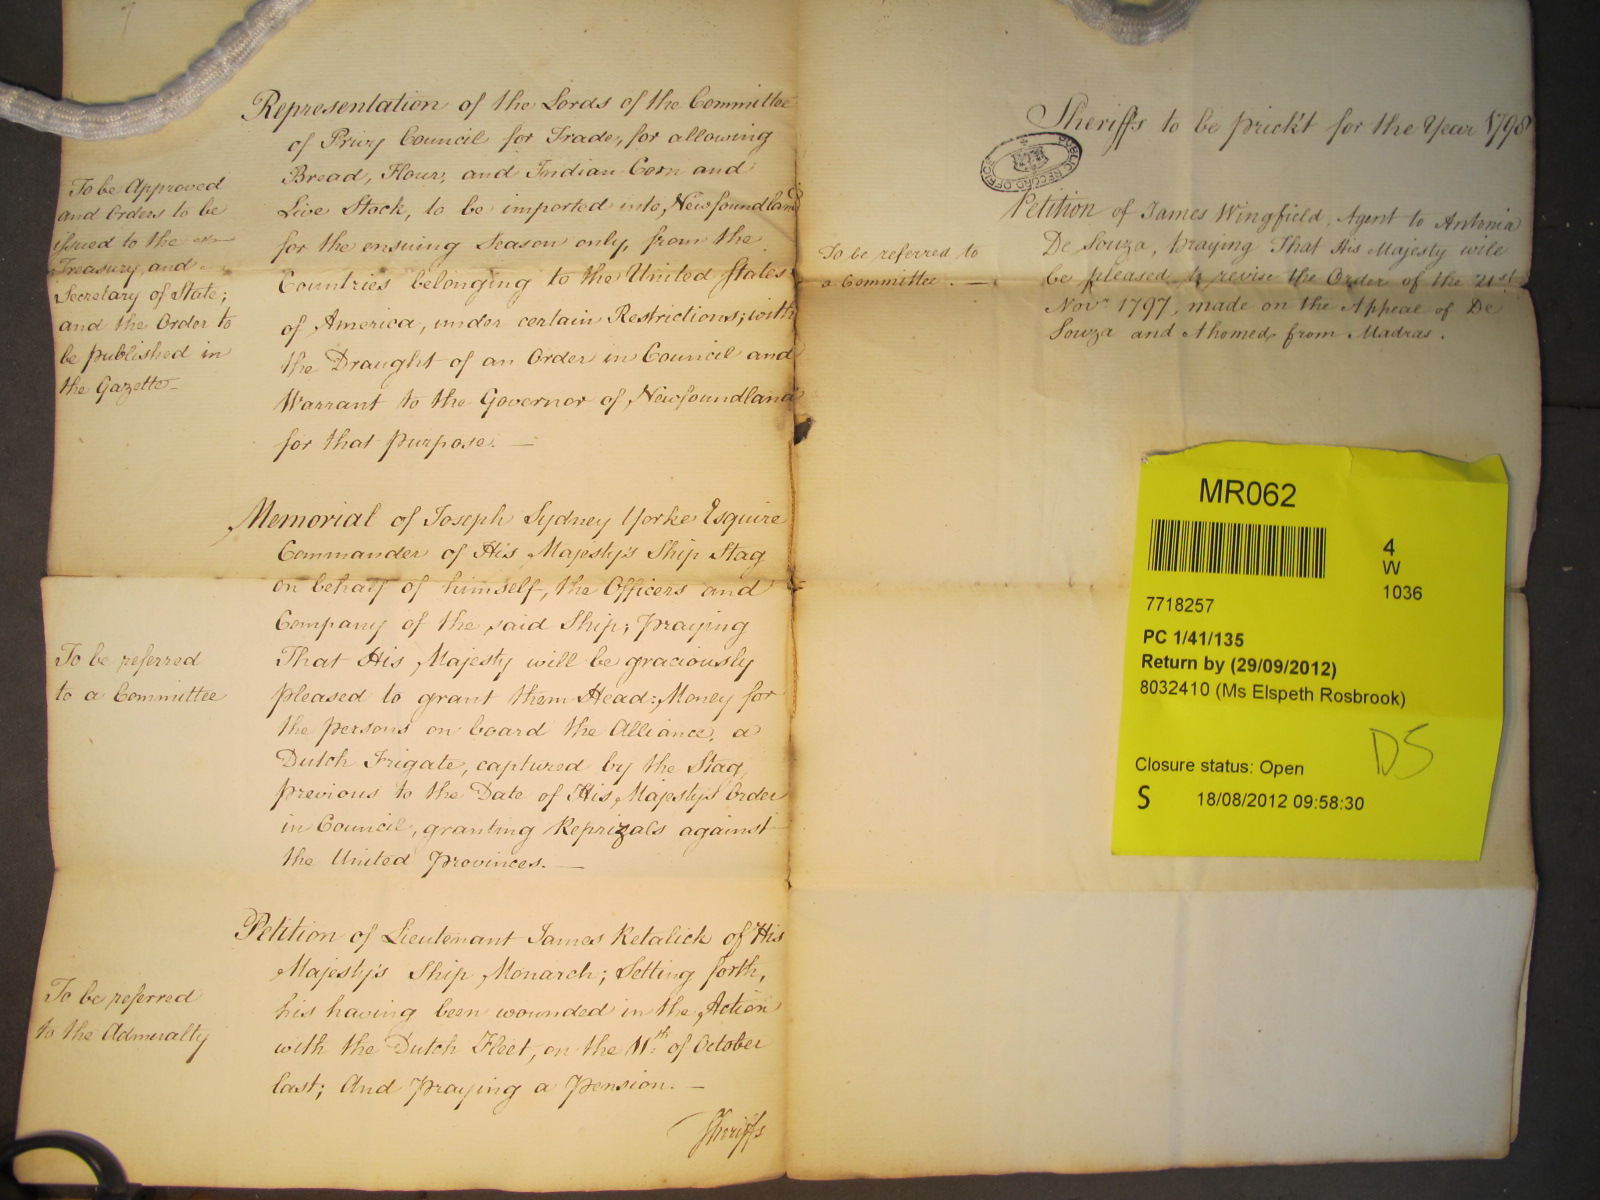 Representation of the Lords of the Committee
of Privy Council for Trade, for allowing
Bread, Flour, and Indian Corn and
Live Stock, to be imported into Newfoundland
for the ensuing Season only, from the
Countries belonging to the United States
of America, under certain Restrictions; with
the Draught of an Order in Council and
Warrant to the Governor of Newfoundland
for that purpose. —
To be Approved
and Orders to be
issued to the
Treasury, and
Secretary of State;
and the Order to
be published in
the Gazette —
Memorial of Joseph Sydney Yorke Esquire
Commander of His Majesty's Ship Stag
on behalf of himself, the Officers and
Company of the said Ship; Praying
That His Majesty will be graciously
pleased to grant them Head-Money for
the persons on board the Alliance, a
Dutch Frigate, captured by the Stag,
previous to the Date of His Majesty's Order
in Council, granting Reprizals against
the United Provinces. —
To be referred
to a Committee
Petition of Lieutenant James Retalick of His
Majesty's Ship Monarch; Setting forth,
his having been wounded in the Action
with the Dutch Fleet, on the 11th of October
last; And Praying a Pension. —
To be referred
to the Admiralty
Sheriffs
Sheriffs to be prickt for the Year 1798
PUBLIC RECORD OFFICE
Petition of James Wingfield, Agent to Antonia
De Souza, praying That His Majesty will
be pleased to revise the Order of the 21st
Novr 1797, made on the Appeal of De
Souza and Ahomed, from Madras.
To be referred to
a Committee. —
MR062
4
W
1036
7718257
PC 1/41/135
Return by (29/09/2012)
8032410 (Ms Elspeth Rosbrook)
DS
Closure status: Open
S 18/08/2012 09:58:30